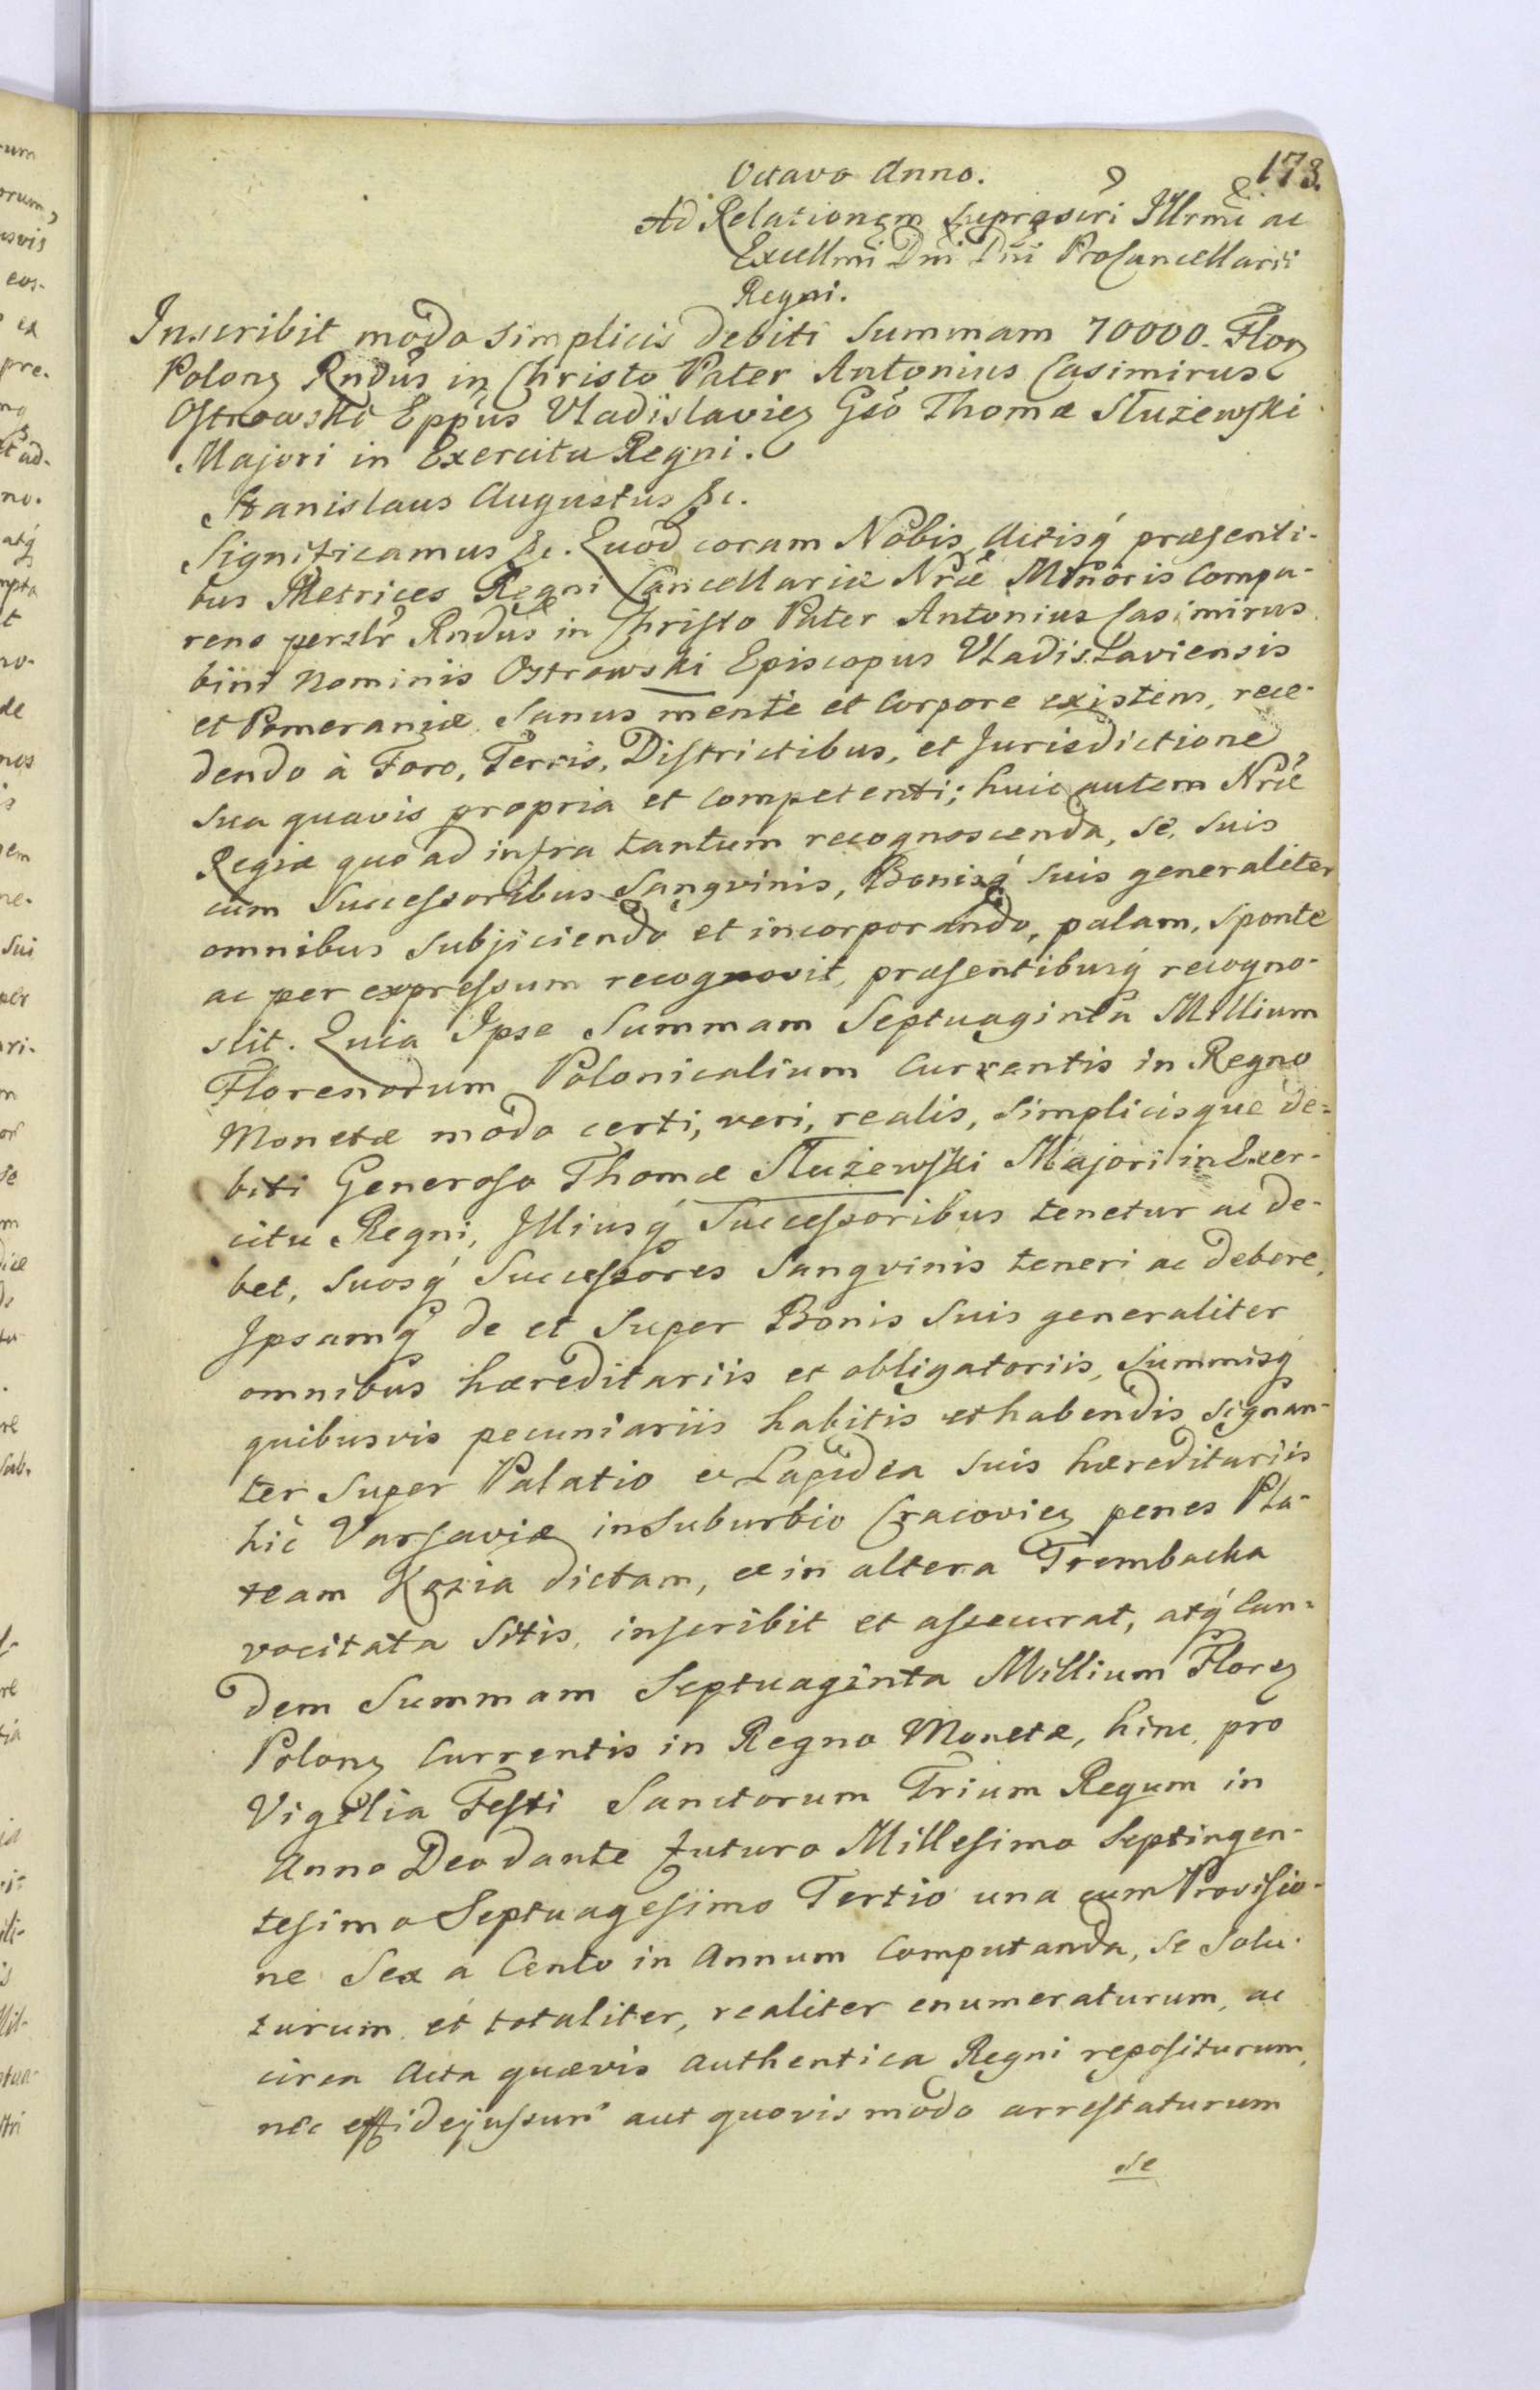 173.
Octavo Anno.
Ad Relationem suprascri Illrmi ac
Excellmi Dni Dni ProCancellarii
Regni.
Inscribit modo simplicis debiti Summam 70000. Flor
Polon Rndus in Christo Pater Antonius Casimirus
Ostrowski Eppus Vladislavien Gso Thomæ Służewski
Majori in Exercitu Regni.
Stanislaus Augustus &c.
Significamus &c. Quod coram Nobis Actisq́ præsenti-
bus Metrices Regni Cancellariæ Nræ Minoris Compa-
rens perslr Rndus in Christo Pater Antonius Casimirus
bini Nominis Ostrowski Episcopus Vladislaviensis
et Pomeraniæ, Sanus mente et Corpore existens, rece-
dendo à Foro, Terris, Districtibus, et Jurisdictione
sua quavis propria et competenti; huic autem Nræ
Regiæ quo ad infra tantum recognoscenda, se, suis
cum Successoribus Sangvinis, Bonisq́ suis generaliter
omnibus subjiciendo et incorporando, palam, sponte
ac per expressum recognovit, præsentibusq́ recogno-
scit. Quia Ipse Summam Septuaginta Millium
Florenorum Polonicalium Currentis in Regno
Monetæ modo certi, veri, realis, simplicisque de=
biti Generoso Thomæ Służewski Majori in Exer-
citu Regni, Illiusq́ Successoribus tenetur ac de-
bet, Suosq́ Successores Sangvinis teneri ac debere,
Ipsamq́ de et Super Bonis Suis generaliter
omnibus hæreditariis et obligatoriis, Summisq́
quibusvis pecuniariis habitis et habendis, signan-
ter Super Palatio et Lapidea suis hæreditariis
hic Varsaviæ in Suburbio Cracovien penes Pla-
team Kozia dictam, et in altera Trembacka
vocitata sitis, inscribit et assecurat, atq́ Ean=
dem Summam Septuaginta Millium Floren
Polon Currentis in Regno Monetæ, hinc, pro
Vigilia Festi Sanctorum Trium Regum in
Anno Deo dante futuro Millesimo Septingen-
tesimo Septuagesimo Tertio una cum Provisio-
ne Sex a Cento in Annum Computanda, se Solu-
turum, et totaliter, realiter enumeraturum, ac
circa Acta quævis Authentica Regni repositurum,
nec effidejussuri aut quovis modo arrestaturum
se